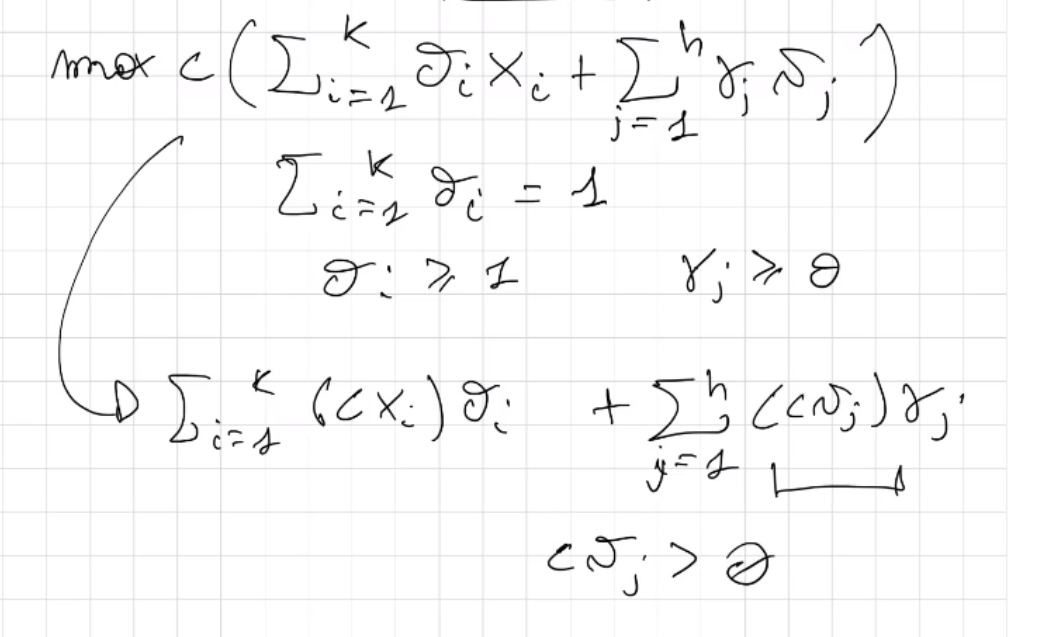 max c(∑_{i=1}^{k} λ_i x_i + ∑_{j=1}^{h} γ_j v_j)
∑_{i=1}^{k} λ_i = 1
λ_i ≥ 1 γ_j ≥ 0
∑_{i=1}^{k} (c x_i) λ_i + ∑_{j=1}^{h} (c v_j) γ_j
c v_j > 0